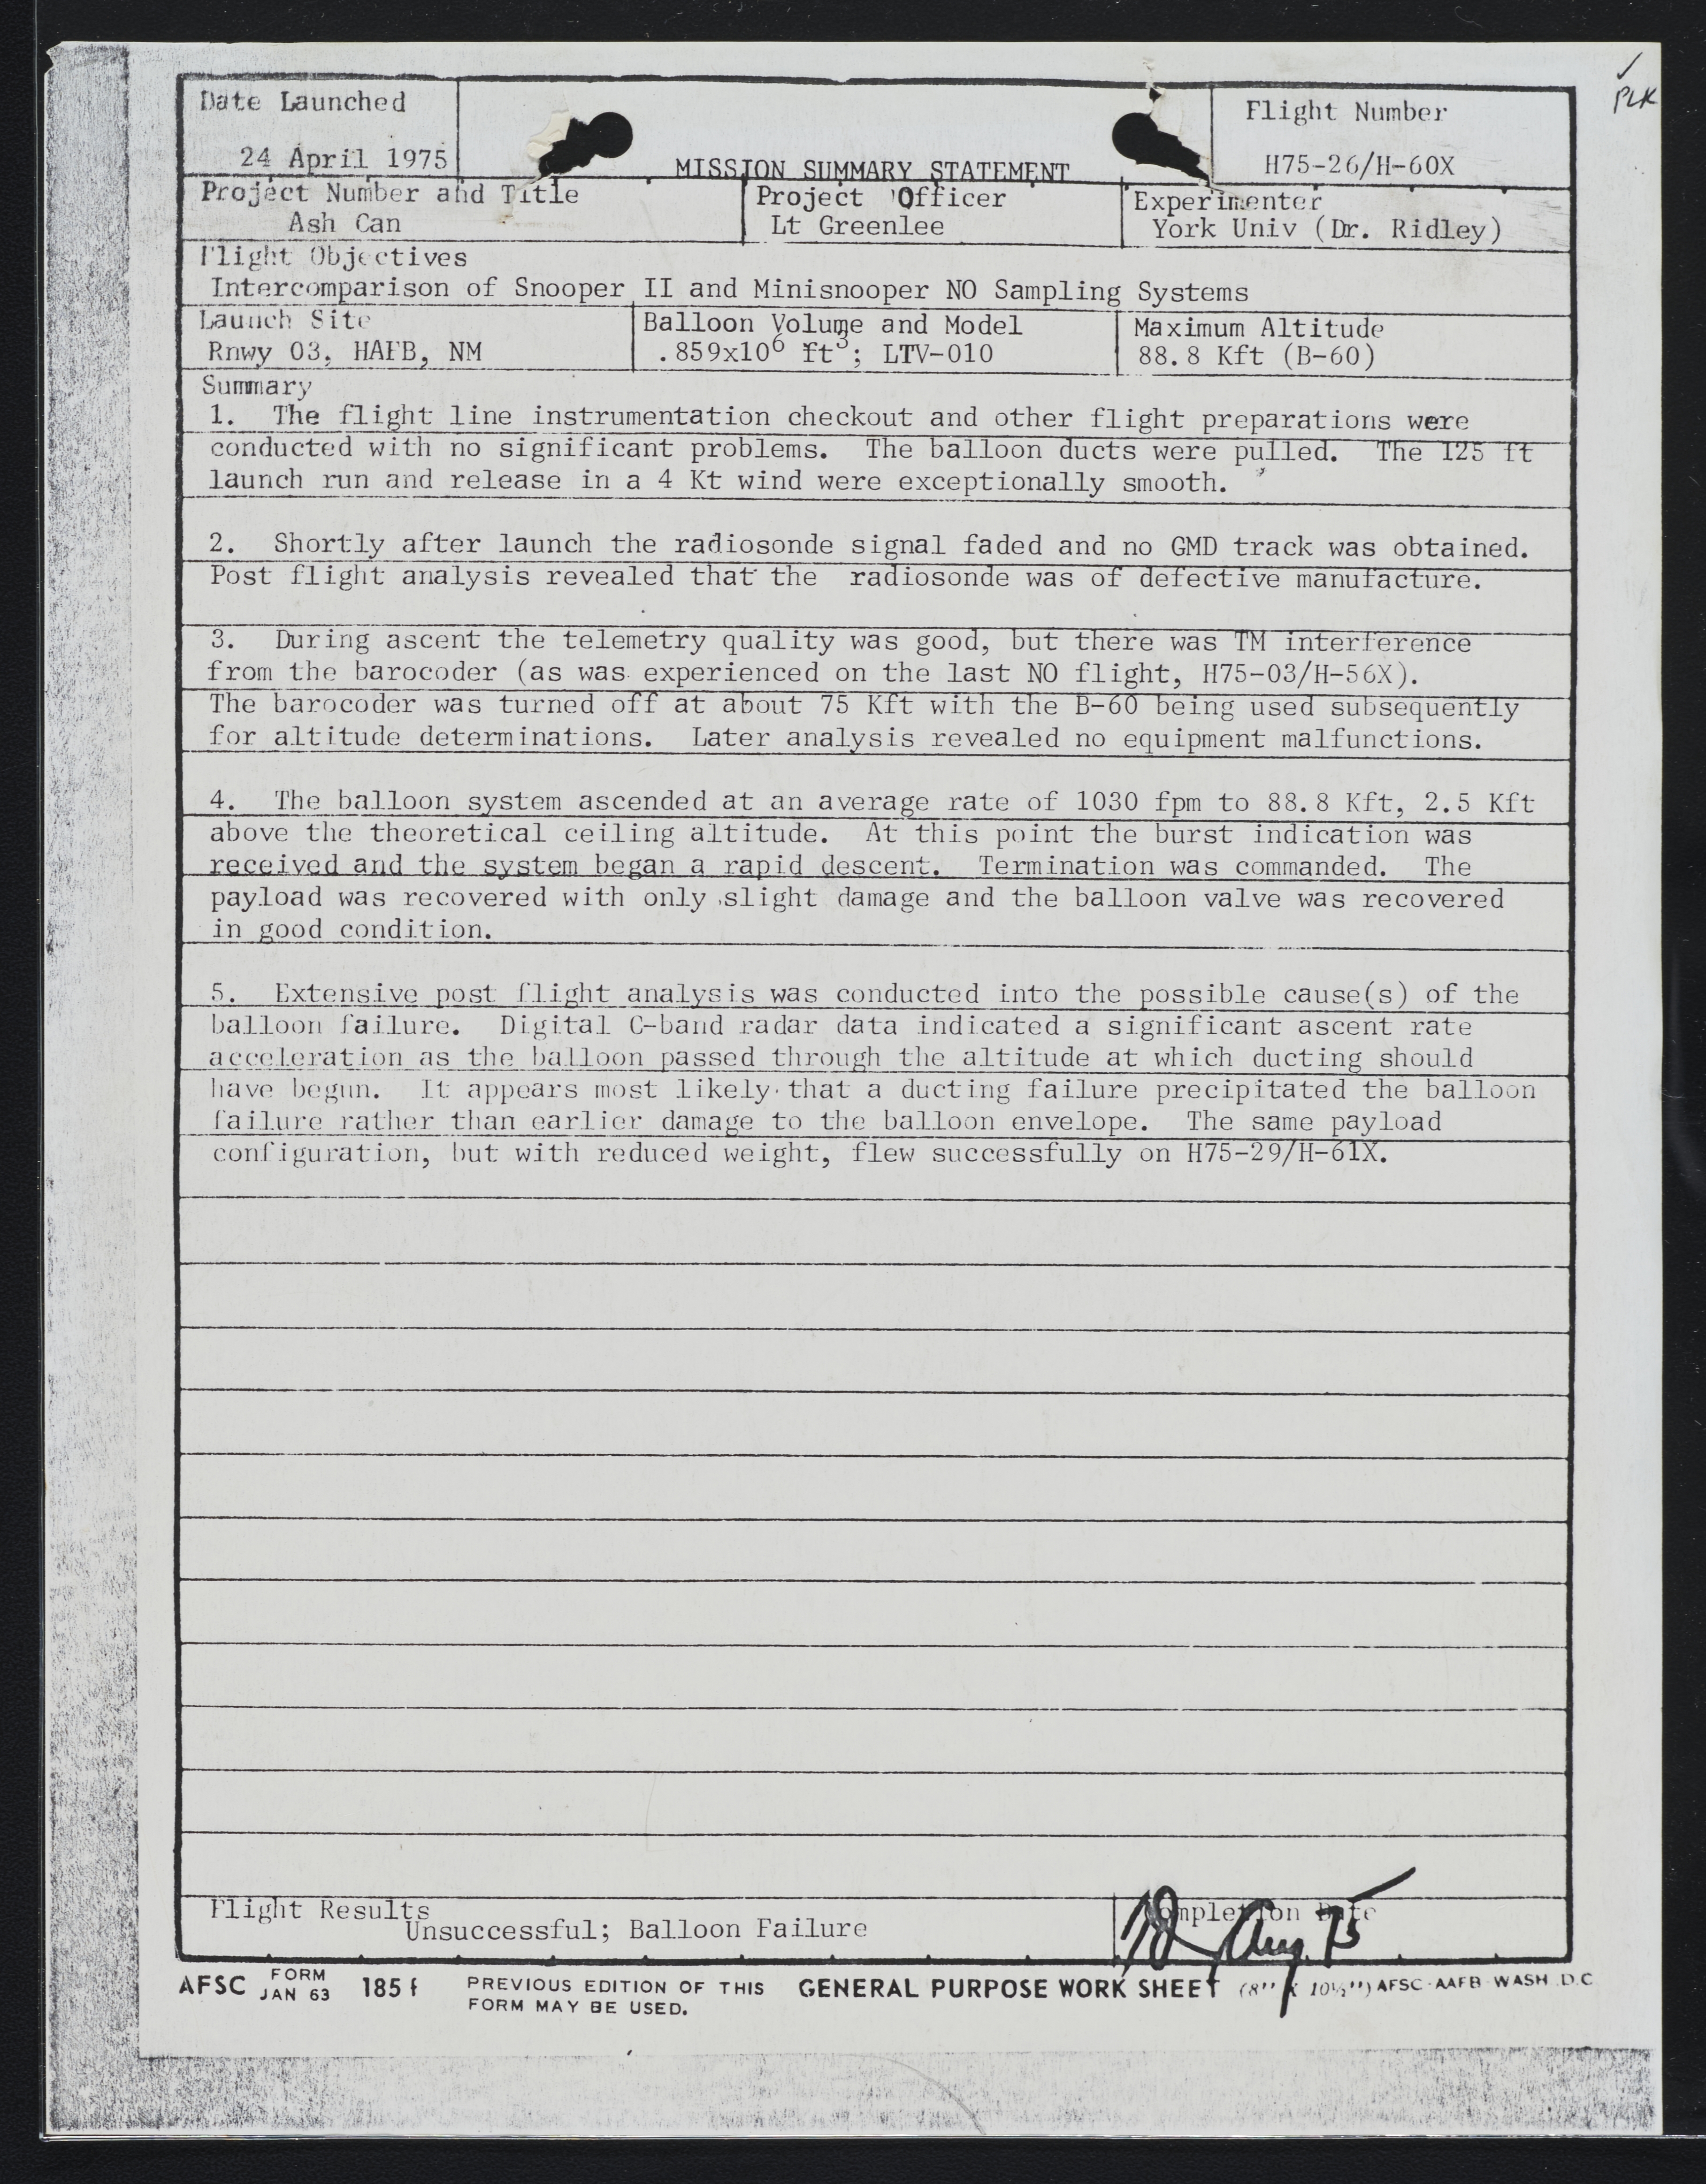 PLK
Date Launched
Flight Number
24 April 1975
MISSION SUMMARY STATEMENT
H75-26/H-60X
Project Number and Title
Project Officer
Experimenter
Ash Can
Lt Greenlee
York Univ (Dr. Ridley)
Flight Objectives
Intercomparison of Snooper II and Minisnooper NO Sampling Systems
Launch Site
Balloon Volume and Model
Maximum Altitude
Rnwy 03, HAFB, NM
.859x10⁶ ft³; LTV-010
88.8 Kft (B-60)
Summary
1. The flight line instrumentation checkout and other flight preparations were
conducted with no significant problems. The balloon ducts were pulled. The 125 ft
launch run and release in a 4 Kt wind were exceptionally smooth.
2. Shortly after launch the radiosonde signal faded and no GMD track was obtained.
Post flight analysis revealed that the radiosonde was of defective manufacture.
3. During ascent the telemetry quality was good, but there was TM interference
from the barocoder (as was experienced on the last NO flight, H75-03/H-56X).
The barocoder was turned off at about 75 Kft with the B-60 being used subsequently
for altitude determinations. Later analysis revealed no equipment malfunctions.
4. The balloon system ascended at an average rate of 1030 fpm to 88.8 Kft, 2.5 Kft
above the theoretical ceiling altitude. At this point the burst indication was
received and the system began a rapid descent. Termination was commanded. The
payload was recovered with only slight damage and the balloon valve was recovered
in good condition.
5. Extensive post flight analysis was conducted into the possible cause(s) of the
balloon failure. Digital C-band radar data indicated a significant ascent rate
acceleration as the balloon passed through the altitude at which ducting should
have begun. It appears most likely that a ducting failure precipitated the balloon
failure rather than earlier damage to the balloon envelope. The same payload
configuration, but with reduced weight, flew successfully on H75-29/H-61X.
Flight Results
Completion Date
Unsuccessful; Balloon Failure
18 Aug 75
AFSC FORM JAN 63 185f PREVIOUS EDITION OF THIS FORM MAY BE USED. GENERAL PURPOSE WORK SHEET (8" X 10½") AFSC-AAFB-WASH.D.C